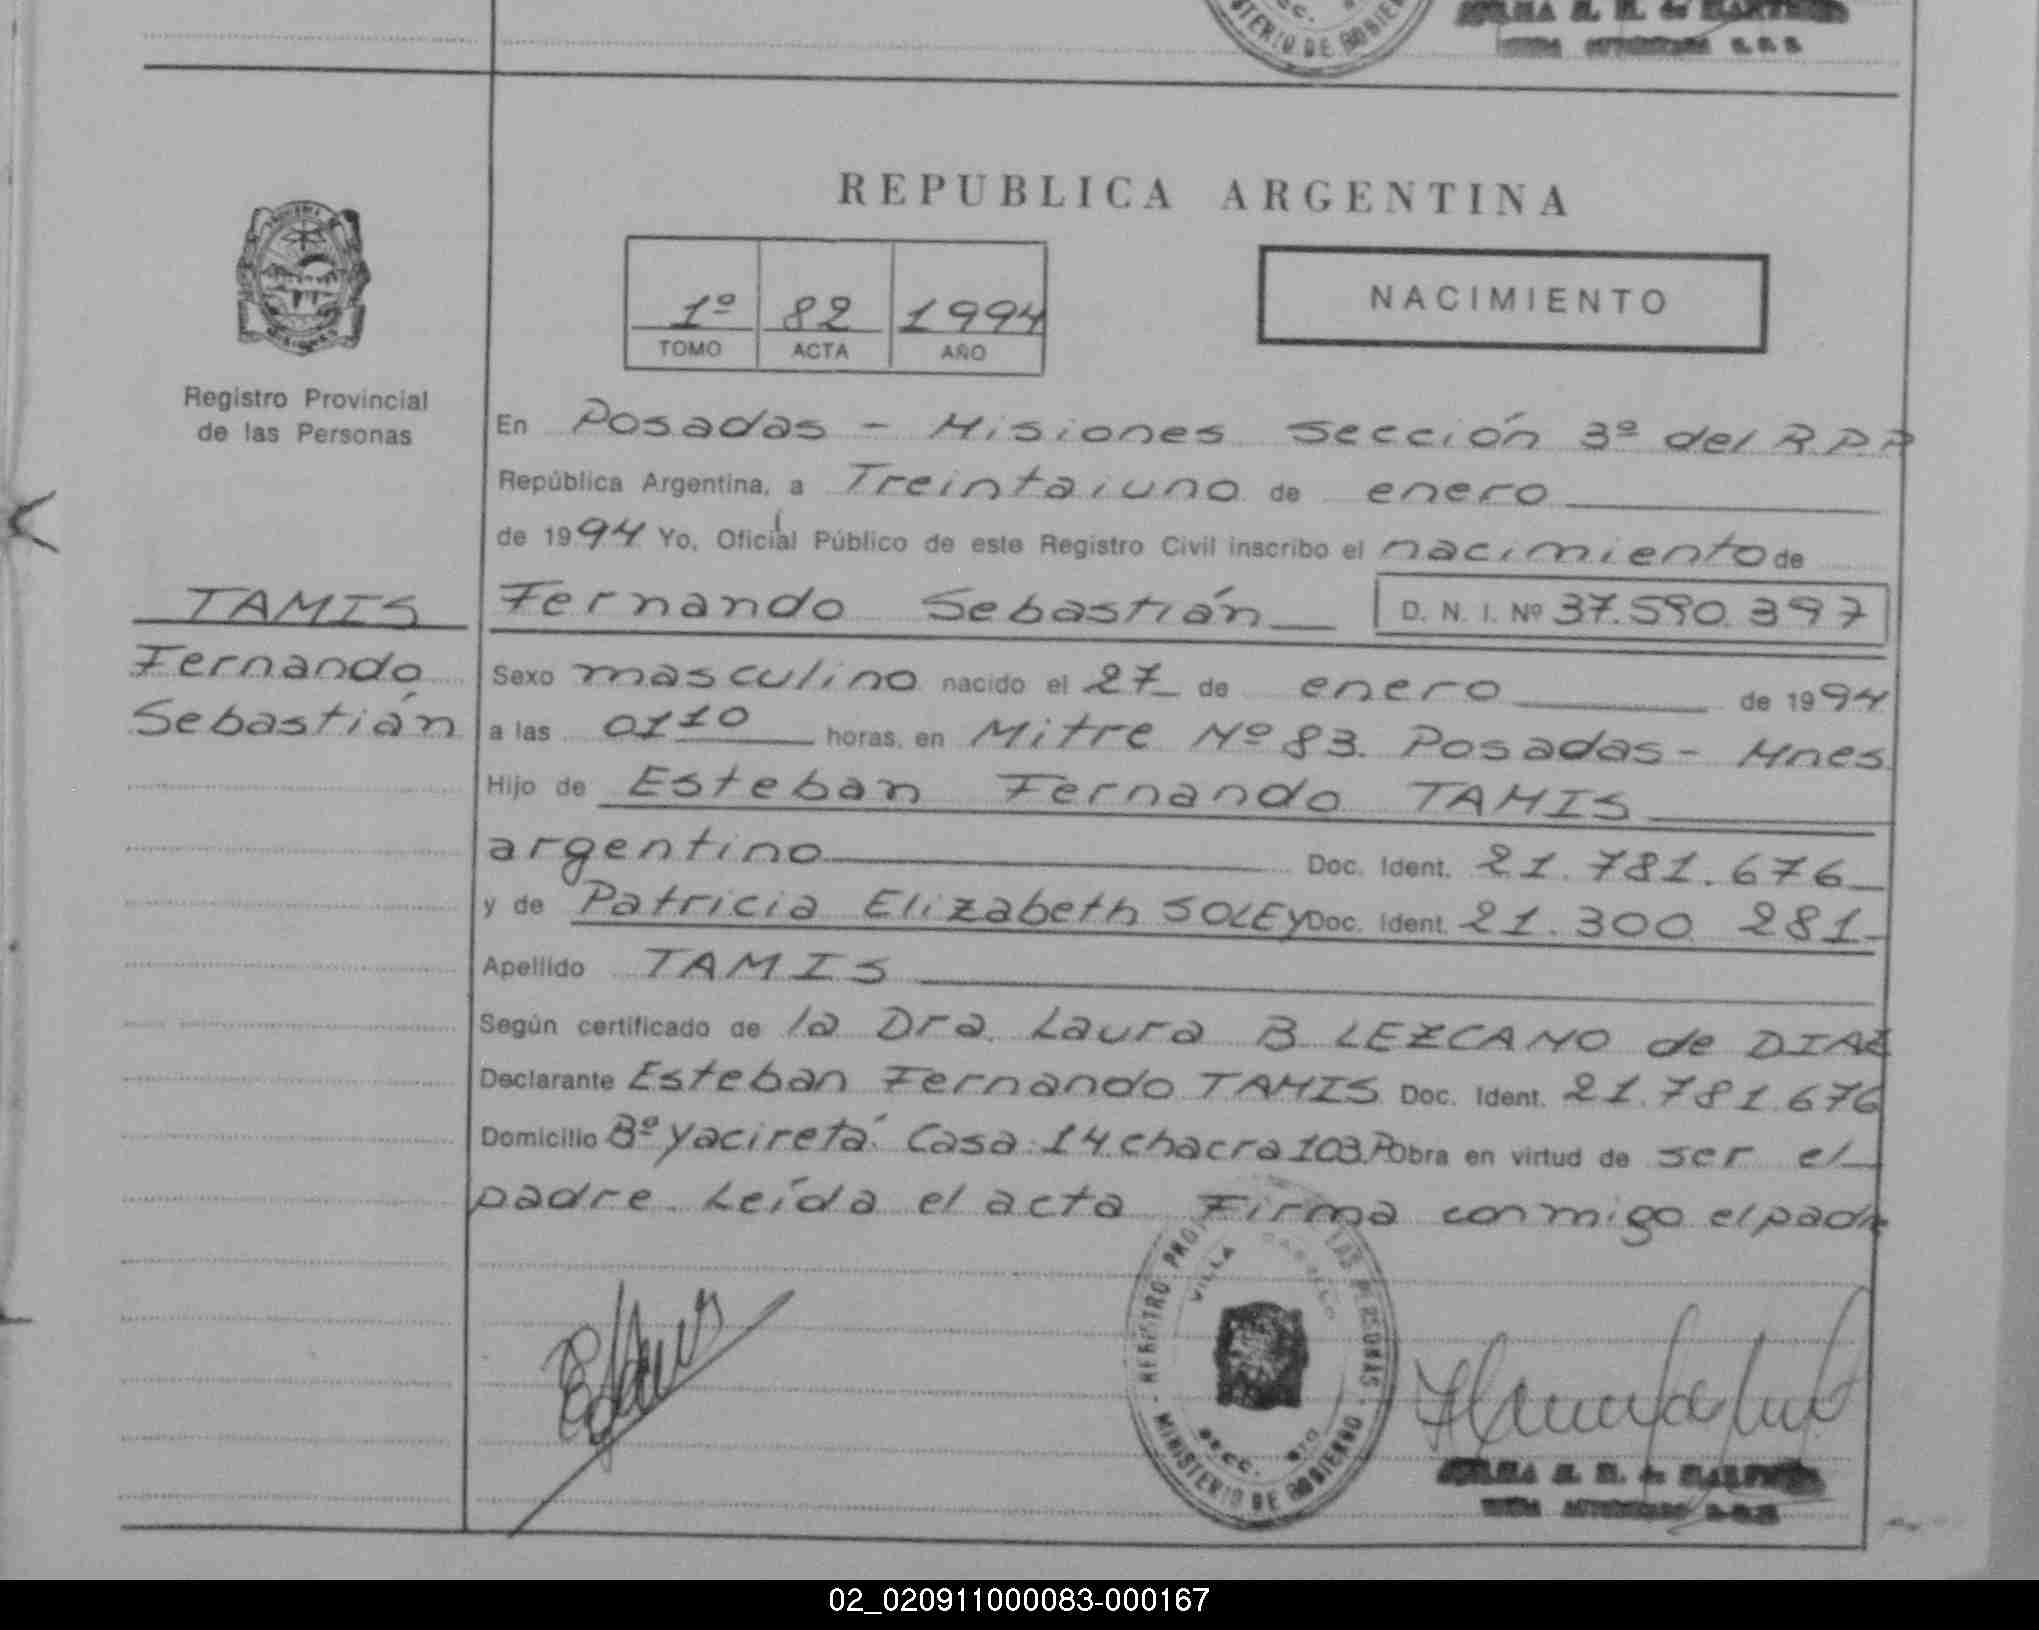 MINISTERIO DE GOBIERNO
REPUBLICA ARGENTINA
1º 82 1994
TOMO ACTA AÑO
NACIMIENTO
Registro Provincial
de las Personas
En Posadas - Misiones Sección 3ª del R.P.P
República Argentina, a Treintaiuno de enero
de 1994 Yo, Oficial Público de este Registro Civil inscribo el nacimiento de
TAMIS
Fernando
Sebastián
Fernando Sebastián D. N. I. Nº 37.590.397
Sexo masculino nacido el 27 de enero de 1994
a las 0110 horas, en Mitre Nº 83. Posadas - Mnes
Hijo de Esteban Fernando TAMIS
argentino Doc. Ident. 21.781.676
y de Patricia Elizabeth SOLEY Doc. Ident. 21.300 281
Apellido TAMIS
Según certificado de la Dra. Laura B LEZCANO de DIAZ
Declarante Esteban Fernando TAMIS Doc. Ident. 21.781.676
Domicilio Bº Yacireta Casa 14 chacra 103 Po obra en virtud de ser el
padre. Leída el acta Firma conmigo el padre
VILLA
LAS PERSONAS
SECC.
MINISTERIO DE GOBIERNO
02_020911000083-000167